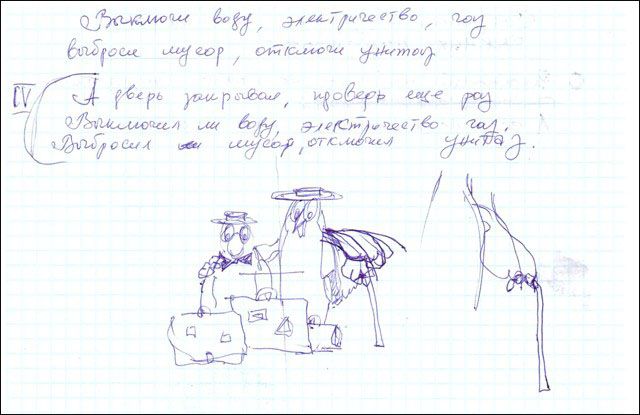 Выключи воду, электричество, газ
выброси мусор, отключи унитаз.
IV А дверь закрывая, проверь еще раз
Выключил ли воду, электричество газ,
Выбросил мусор, отключил унитаз.